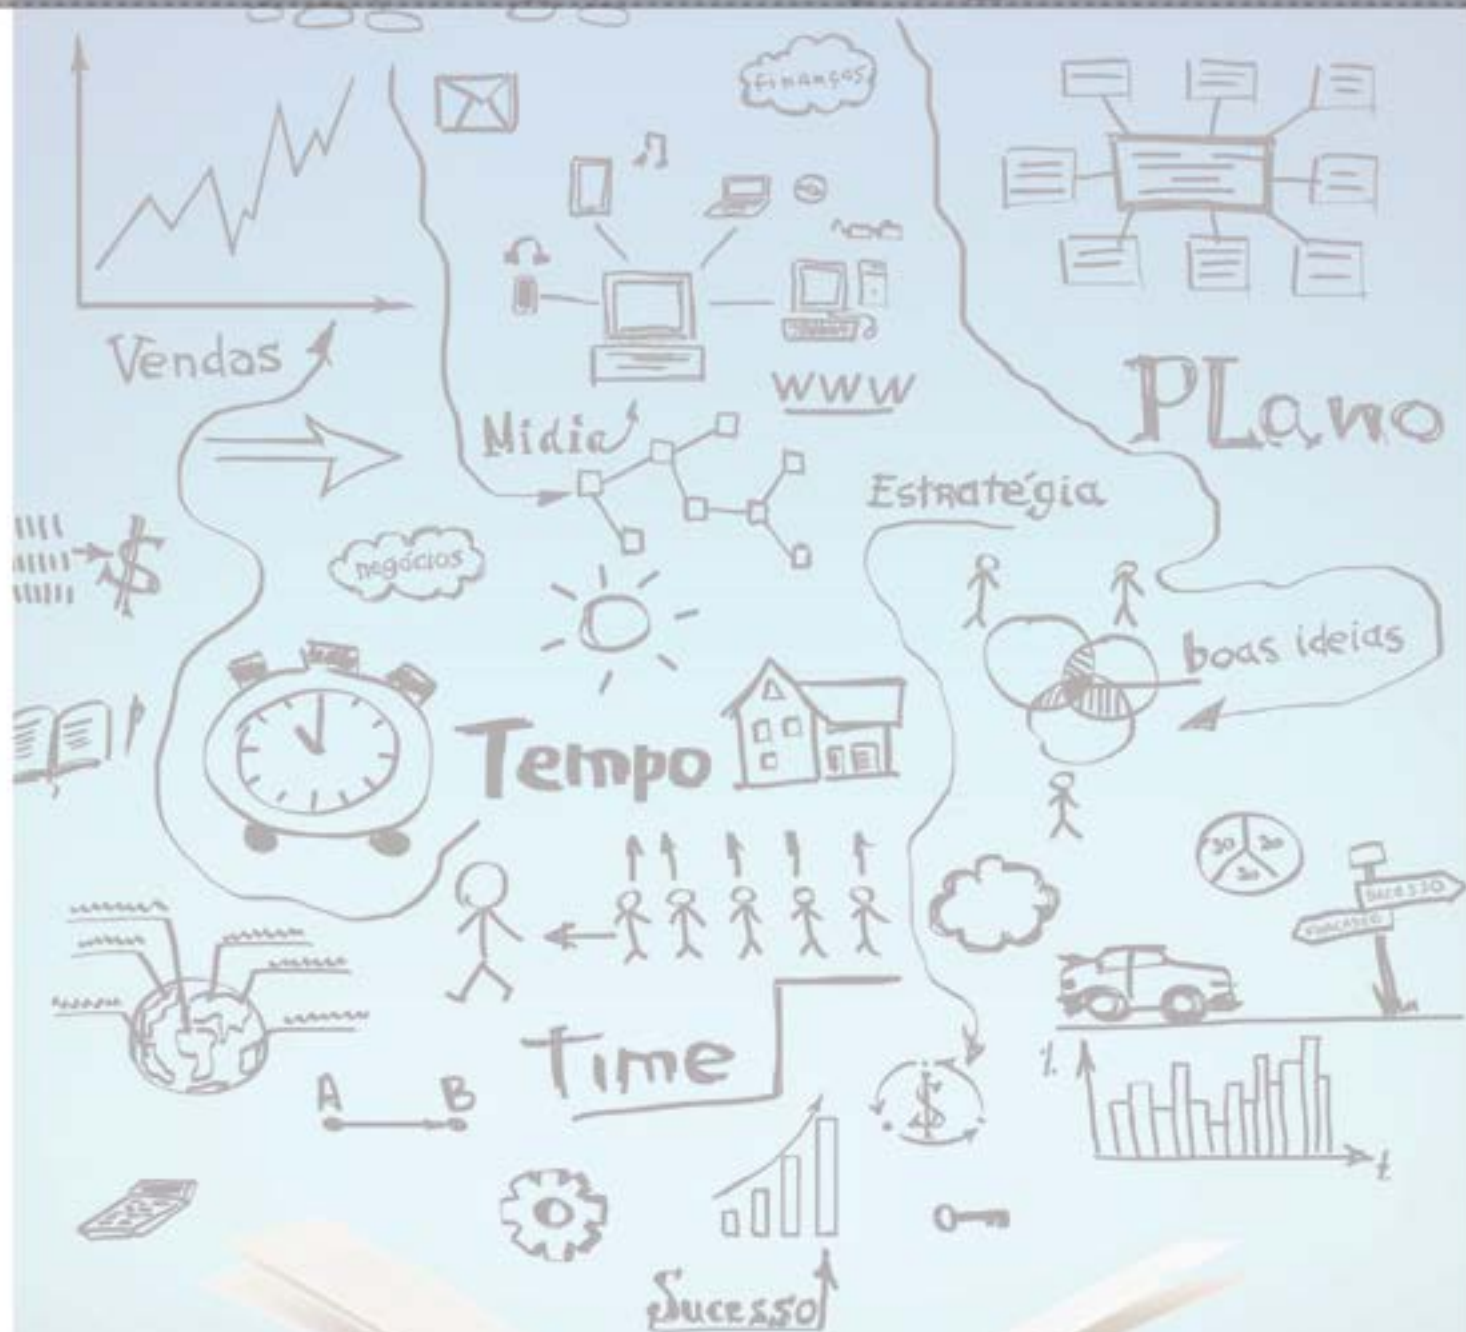 finanças
Vendas
WWW
Mídia
PLano
Estratégia
negócios
boas ideias
Tempo
30 30
30
SUCESSO
FRACASSO
Time
A B
%
t
Sucesso